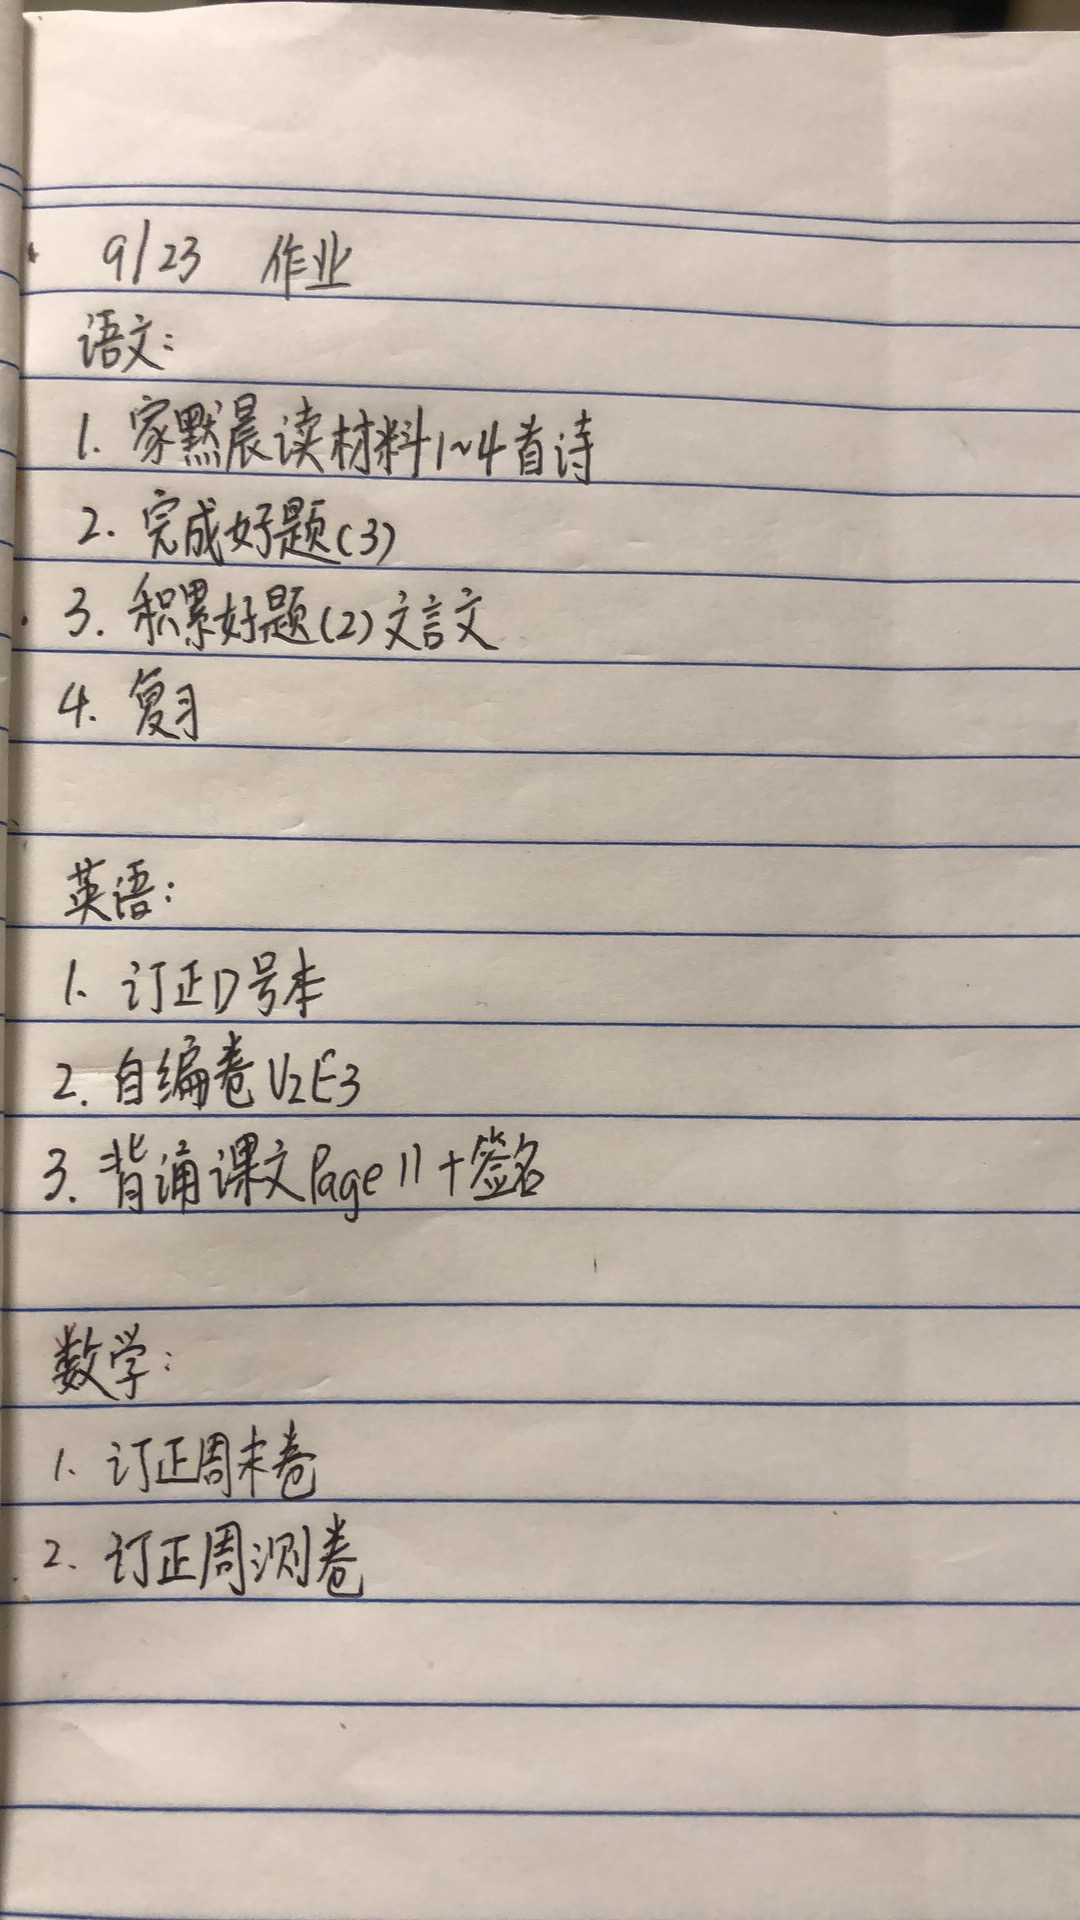 9/23 作业
语文:
1. 家默晨读材料1~4首诗
2. 完成好题(3)
3. 积累好题(2)文言文
4. 复习
英语:
1. 订正D号本
2. 自编卷U2E3
3. 背诵课文Page 11 + 签名
数学:
1. 订正周末卷
2. 订正周测卷